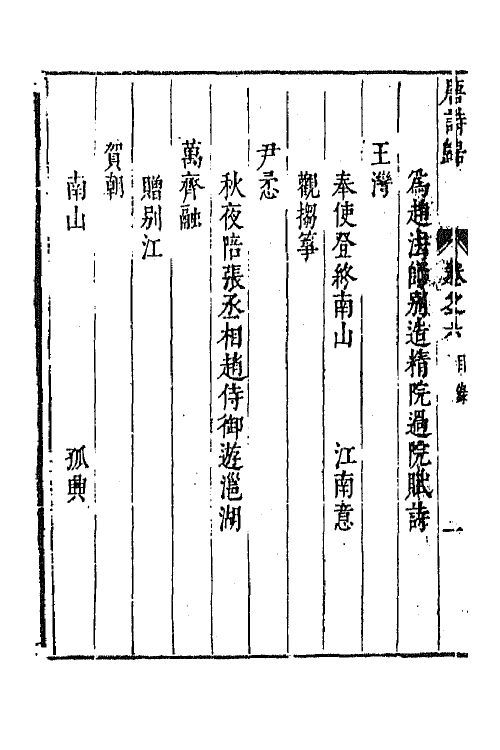 唐詩歸 卷之六 目錄 一
爲趙法師別造精院過院賦詩
王灣
奉使登終南山 江南意
觀搊箏
尹懋
秋夜陪張丞相趙侍御遊㴩湖
萬齊融
贈別江
賀朝
南山 孤興